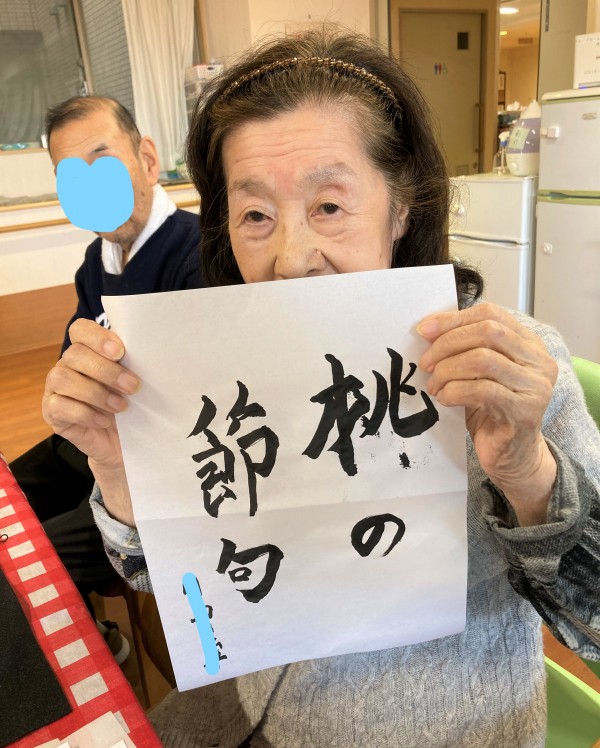 桃の
節句